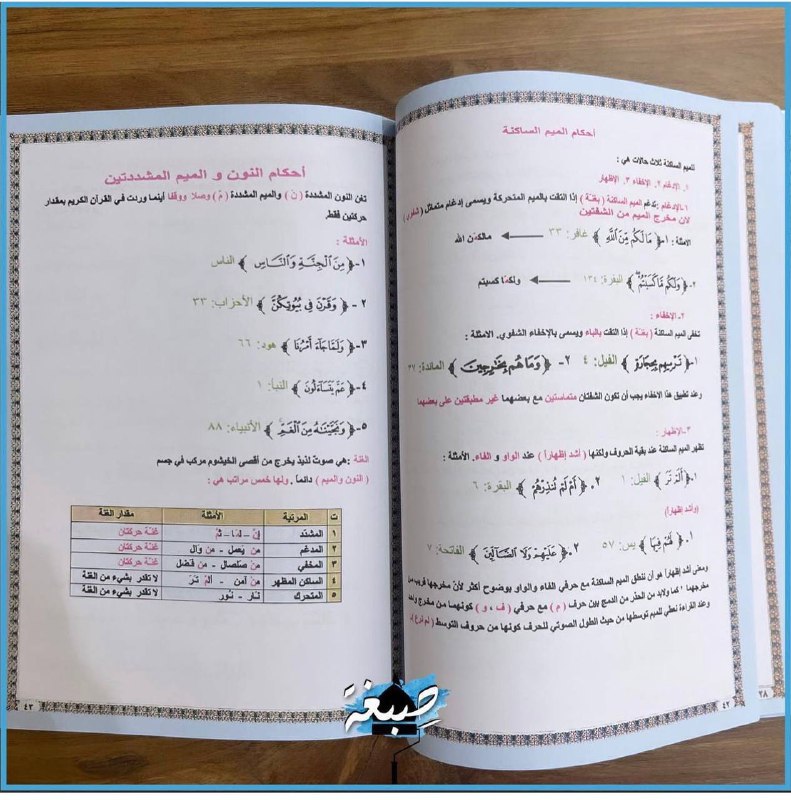 أحكام الميم الساكنة
للميم الساكنة ثلاث حالات هي :
١. الإدغام ٢. الإخفاء ٣. الإظهار
١-الإدغام :تدغم الميم الساكنة ( بغنة ) إذا التقت بالميم المتحركة ويسمى إدغام متماثل ( شفوي )
لأن مخرج الميم من الشفتين
الامثلة : ١-﴿ مَا لَكُم مِّنَ اللَّهِ ﴾ غافر: ٣٣ مالكمّن الله
٢-﴿ وَلَكُم مَّا كَسَبْتُمْ ﴾ البقرة: ١٣٤ ولكمّا كسبتم
٢-الإخفاء :
تخفى الميم الساكنة ( بغنة ) إذا التقت بالباء ويسمى بالإخفاء الشفوي. الأمثلة :
١-﴿ تَرْمِيهِم بِحِجَارَةٍ ﴾ الفيل: ٤ ٢-﴿ وَمَا هُم بِخَارِجِينَ ﴾ المائدة: ٣٧
وعند تطبيق هذا الاخفاء يجب أن تكون الشفتان متماستين مع بعضهما غير مطبقتين على بعضهما
٣-الإظهار :
تظهر الميم الساكنة عند بقية الحروف ولكنها ( أشد إظهاراً ) عند الواو و الفاء. الأمثلة :
١-﴿ أَلَمْ تَرَ ﴾ الفيل: ١ ٢-﴿ أَمْ لَمْ تُنذِرْهُمْ ﴾ البقرة: ٦
(وأشد إظهاراً)
١-﴿ لَهُمْ فِيهَا ﴾ يس: ٥٧ ٢-﴿ عَلَيْهِمْ وَلَا الضَّالِّينَ ﴾ الفاتحة: ٧
ومعنى أشد إظهاراً هو أن ننطق الميم الساكنة مع حرفي الفاء والواو بوضوح أكثر لأن مخرجها قريب من
مخرجهما ، كما ولابد من الحذر من الدمج بين حرف ( م ) مع حرفي ( ف ، و ) كونهما من مخرج واحد
وعند القراءة نعطي للميم توسطها من حيث الطول الصوتي للحرف كونها من حروف التوسط
٤٢
٣٨
أحكام النون و الميم المشددتين
تغن النون المشددة ( نّ ) والميم المشددة ( مّ ) وصلا ووقفا أينما وردت في القرآن الكريم بمقدار
حركتين فقط.
الأمثلة :
١-﴿ مِنَ الْجِنَّةِ وَالنَّاسِ ﴾ الناس
٢-﴿ وَقَرْنَ فِي بُيُوتِكُنَّ ﴾ الأحزاب: ٣٣
٣-﴿ وَلَمَّا جَاءَ أَمْرُنَا ﴾ هود: ٦٦
٤-﴿ عَمَّ يَتَسَاءَلُونَ ﴾ النبأ: ١
٥-﴿ وَنَجَّيْنَاهُ مِنَ الْغَمِّ ﴾ الأنبياء: ٨٨
الغنة :هي صوت لذيذ يخرج من أقصى الخيشوم مركب في جسم
( النون والميم ) دائماً . ولها خمس مراتب هي :
ت المرتبة الأمثلة مقدار الغنة
١ المشدّد إنّ - لمّا - ثمّ غنّة حركتان
٢ المدغم مَن يَعمل - مِن وَال غنّة حركتان
٣ المخفي مِن صلصال - مِن فَضل غنّة حركتان
٤ الساكن المظهر مَن آمن - ألمْ تَرَ لا تقدر بشيء من الغنة
٥ المتحرك نَار - نُور لا تقدر بشيء من الغنة
٤٣
صبغة